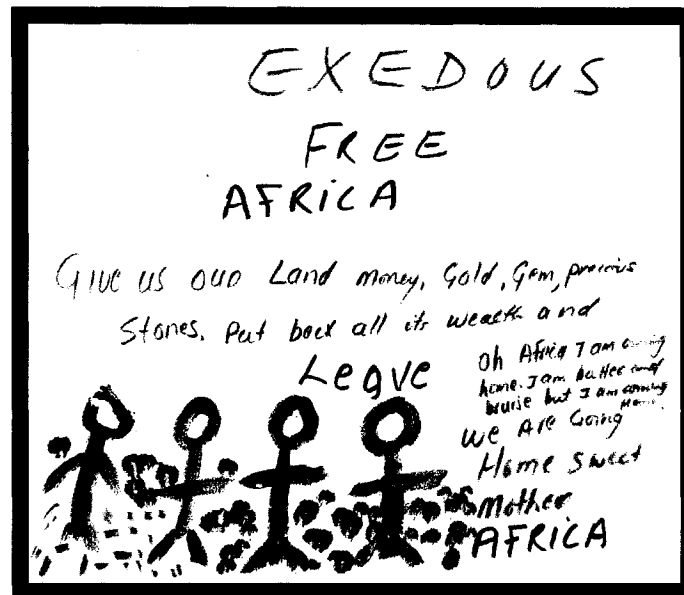 EXEDOUS
FREE
AFRICA
GIVE US OUR Land money, Gold, Gem, precious
Stones. Put back all its wealth and
Leave
Oh Africa I am coming
home. I am batter and
bruise but I am coming
Home.
WE ARE GOING
Home Sweet
Mother
AFRICA